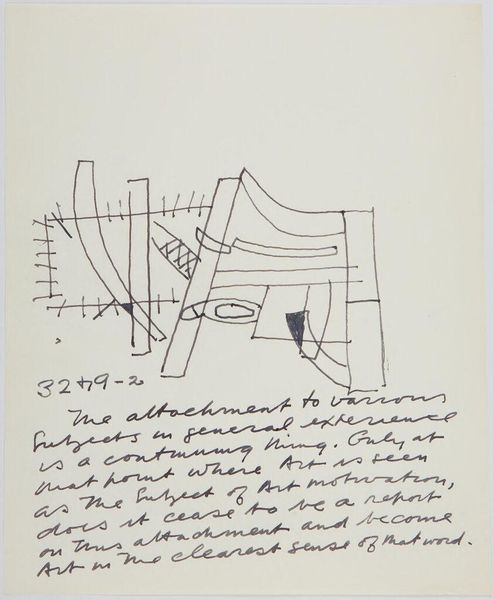 3279-2
The attachment to various
subjects in general experience
is a continuing thing. Only at
that point where Art is seen
as the subject of Art motivation,
does it cease to be a report
on this attachment and become
Art in the clearest sense of that word.